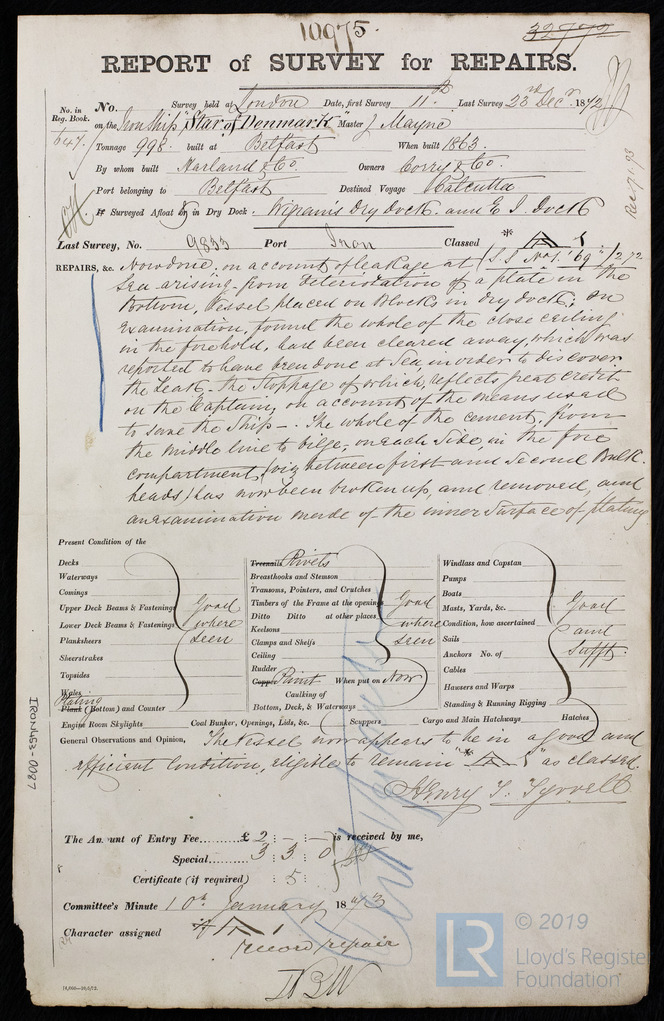 10975.
32772
REPORT of SURVEY for REPAIRS.
No. in Reg. Book. 647.
No. Survey held at London Date, first Survey 11th Last Survey 23rd Decr. 1872
on the Iron Ship "Star of Denmark" Master J Mayne
Tonnage 998. built at Belfast When built 1863.
By whom built Harland & Co. Owners Corry & Co.
Port belonging to Belfast Destined Voyage Calcutta
If Surveyed Afloat or in Dry Dock. Wigram's Dry dock and E I. Dock
Rec 7/1/73
Last Survey, No. 9833 Port Iron Classed * A 1
(S.S No 1. '69) 12,72
REPAIRS, &c. Now done, on account of leakage at
Sea arising from deterioration of a plate in the
Bottom, Vessel placed on Blocks in dry dock; On
Examination, found the whole of the close ceiling
in the forehold, had been cleared away, which was
reported to have been done at Sea in order to discover
the Leak, the Stoppage of which, reflects great credit
on the Captain, on account of the means used
to save the Ship –. The whole of the cement, from
the middle line to bilge, on each side, in the fore
compartment, (viz between first and second Bulk-
heads) has now been broken up, and removed, and
an examination made of the inner surface of plating
Present Condition of the
Decks
Waterways
Comings
Upper Deck Beams & Fastenings
Lower Deck Beams & Fastenings
Planksheers
Sheerstrakes
Topsides
Wales
Good where seen
Plating
Plank (Bottom) and Counter
Engine Room Skylights
Treenails Rivets
Breasthooks and Stemson
Transoms, Pointers, and Crutches
Timbers of the Frame at the openings
Ditto Ditto at other places
Keelsons
Clamps and Shelfs
Ceiling
Rudder
Good where seen
Copper Paint When put on Now
Caulking of
Bottom, Deck, & Waterways
Windlass and Capstan
Pumps
Boats
Masts, Yards, &c.
Condition, how ascertained
Sails
Anchors No. of
Cables
Hawsers and Warps
Standing & Running Rigging
Good and Sufft.
Coal Bunker, Openings, Lids, &c. Scuppers Cargo and Main Hatchways Hatches
General Observations and Opinion, The Vessel now appears to be in a good and
efficient Condition, eligible to remain "* A 1" as classed
Henry T. Tyrrell
The Amount of Entry Fee £ 2 : – : – is received by me,
Special 3 : 3 : 0
Certificate (if required) : 5 :
Committee's Minute 10th January 1873
Character assigned * A 1
record repair
IRON453-0087
© 2019
LR
Lloyd's Register
Foundation